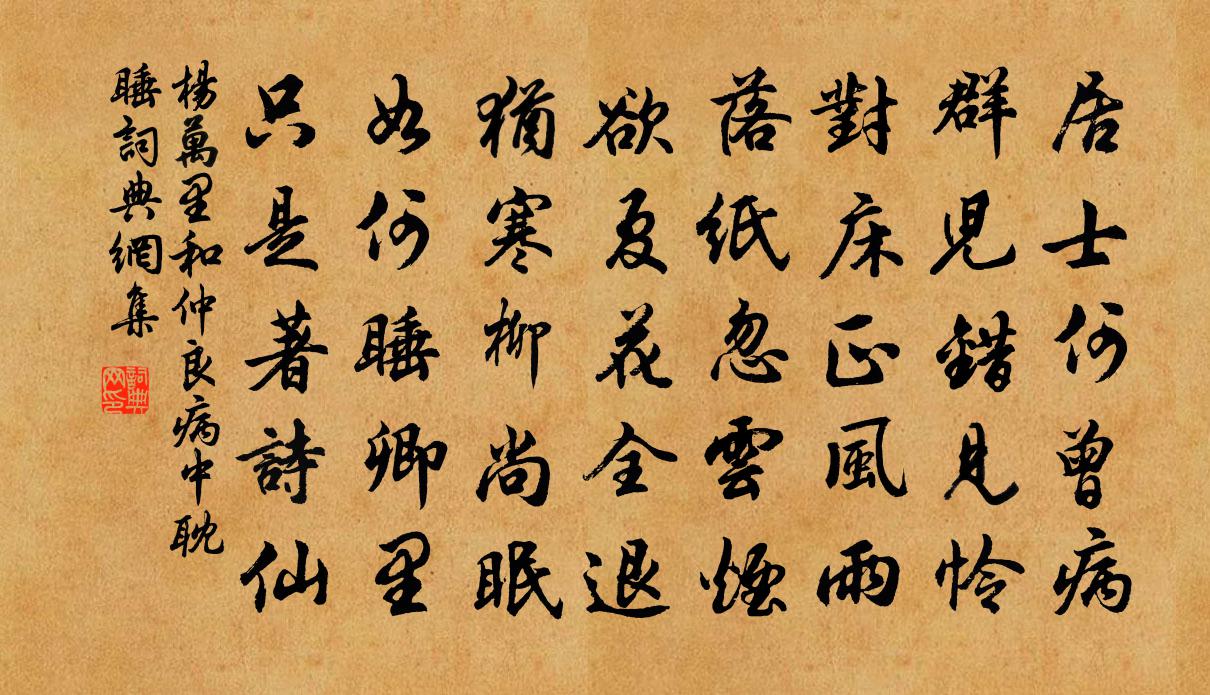 居士何曾病
群児錯見怜
對床正風雨
落紙忽雲煙
欲夏花全退
猶寒柳尚眠
如何睡卿里
只是著詩仙
楊萬里和仲良病中耽
睡詞典網集
詞典
网印